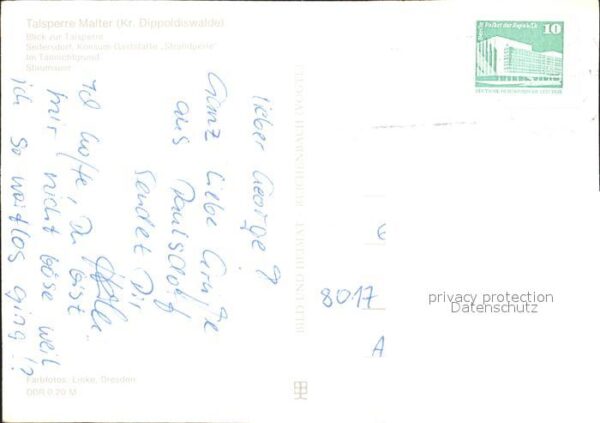 Talsperre Malter (Kr. Dippoldiswalde)
Blick zur Talsperre
Seifersdorf, Konsum-Gaststätte „Strandperle“
Im Tännichtgrund
Staumauer
Lieber George!
Ganz liebe Grüße
aus Paulsdorf
sendet Dir
Ich hoffe, Du bist
mir nicht böse weil
ich so wortlos ging!?
Farbfotos: Linke, Dresden
DDR 0,20 M
BILD UND HEIMAT REICHENBACH (VOGTL)
10
Palast der Republik
DEUTSCHE DEMOKRATISCHE REPUBLIK
8017
A
privacy protection
Datenschutz